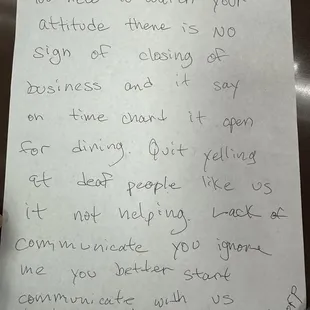 your
attitude there is NO
sign of closing of
business and it say
on time chart it open
for dining. Quit yelling
at deaf people like us
it not helping. Lack of
communicate you ignore
me you better start
communicate with us